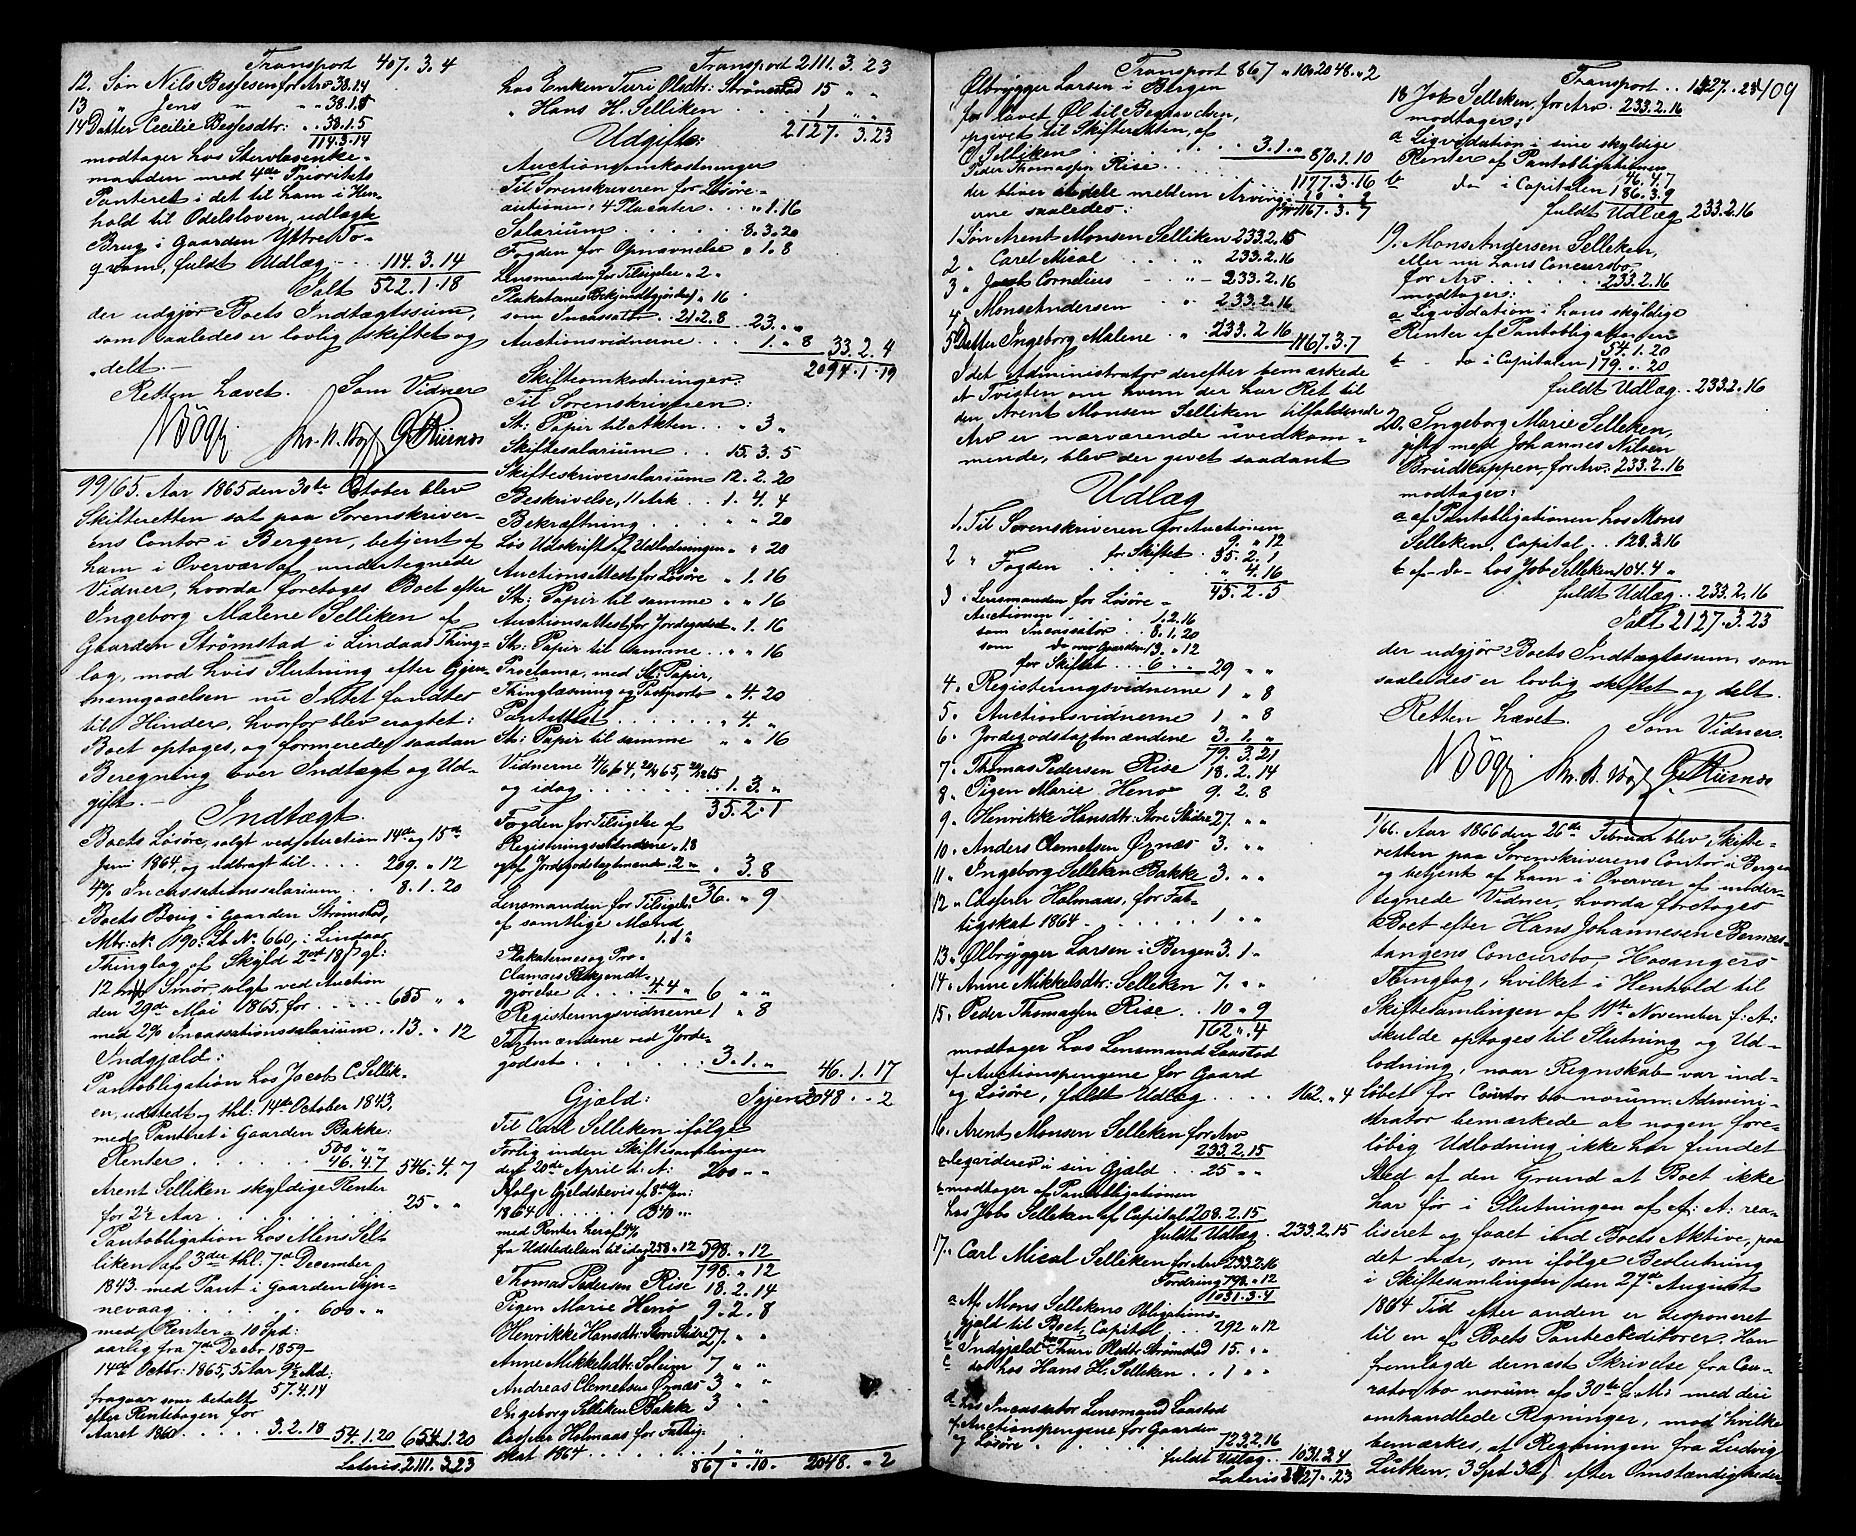 Transport 407. 3. 4
12. Søn Nils Besfesen for Arv 38.1.4
13 " Jens " " " 38.1.5
14 Datter Cecilie Besfesdtr: " 38.1.5
114.3.14
modtager hos Stervboenke-
manden med 4de Prioritets
Panteret i det til ham i Hen-
hold til Odelsloven, udlagte
Brug i Gaarden Yttre Fo-
gram, fuldt Udlæg 114. 3. 14
Ialt 522. 1. 18
der udgjør Boets Indtægtssum,
som saaledes er lovlig skiftet og
delt.
Retten hævet. Som Vidner
99/65. Aar 1865 den 30te October blev
Skifteretten sat paa Sorenskriver-
ens Contor i Bergen, betjent af
ham i Overvær af undertegnede
Vidner, hvorda foretoges Boet efter
Ingeborg Malene Selliken af
Gaarden Strømstad i Lindaas Thing-
lag, med hvis Slutning efter Gjen-
nemgaaelsen nu Intet fandtes
til Hinder, hvorfor blev eragtet:
Boet optages, og formeredes saadan
Beregning over Indtægt og Ud-
gift.
Indtægt.
Boets Løsøre, solgt ved Auction 14de og 15de
Juni 1864, og udbragt til 209. " 12
4% Incassationssalarium 8. 1. 20
Boets Brug i Gaarden Strømstad,
Mbr: No 190. Lb No 660, i Lindaas
Thinglag af Skyld 2 ort 18 s gl:
12 mk Smør, solgt ved Auction
den 29de Mai 1865 for 655 " "
med 2% Incassationssalarium 13. " 12
Indgjæld:
Pantobligation hos Jacob C. Sellik-
en, udstedt og thl: 14de October 1843,
med Panteret i Gaarden Bakke:
500 " "
Renter 46. 4. 7 546. 4. 7
Arent Selliken skyldige Renter
for 2½ Aar 25 " "
Pantobligation hos Mons Sel-
liken af 3die thl. 7de December
1843 med Pant i Gaarden Syn-
nevaag 600 " "
med Renter a 10 Spd:
aarlig fra 7de Decbr 1859-
14de Octbr: 1865, 5 Aar 9½ Md:
57.4.14
fragaar som betalt
efter Rentebogen for
Aaret 1860 3.2.18 54.1.20 654.1.20
Lateris 2111. 3.23
Transport 2111. 3. 23
hos Enken Turi Olsdtr: Strømstad 15 " "
" Hans H. Selliken 1 " "
2127. 3.23
Udgift:
Auctionsomkostninger
Til Sorenskriveren for Løsøre-
auctionen, 4 Placater " 1.16
Salarium 8. 3. 20
Fogden for Opnævnelse " 1. 8
Lensmanden for Tilsigelse " 2 "
Plakatenes Bekjendtgjørelse " 16
som Incassator 21.2.8 23. " "
Auctionsvidnerne 1. " 8 33. 2. 4
2094. 1. 19
Skifteomkostninger:
Til Sorenskriveren:
St: Papir til Akten " 3 "
Skiftesalarium 15. 3. 5
Skifteskriversalarium 12. 2. 20
Beskrivelse, 11 Ark 1. 4. 4
Bekræftning " " 20
Løs Udskrift af Udlodningen " " 20
Auctionsattest for Løsøre " 1. 16
St: Papir til samme " " 16
Auctionsattest for Jordegodset " 1. 16
St: Papir til samme " " 16
Proclama, med St: Papir,
Thinglæsning og Postporto " 4. 20
Pantattest " 4. "
St: Papir til samme " " 16
Vidnerne
og idag 1. 3. "
35. 2. 1
Fogden for Tilsigelse af
Registreringsvidnerne " 1.8
og af Jordegodstaxtmænd " 2 " " 3. 8
36. " 9
Lensmanden for Tilsigelse
af samtlige Mænd
1.1 "
Plakaternes og Pro-
clamaets Bekjendt-
gjørelse 4.4 " 6 " "
Registreringsvidnerne 1 " 8
Taxtmændene ved Jorde-
godset 3. 1. " 46. 1. 17
Igjen 2048. " 2
Gjæld:
Til Carl Selliken ifølge
Forlig inden Skiftesamlingen
den 20de April d: A: 200 " "
Ifølge Gjeldsbevis af 8de Jan:
1864 340 " "
med Renter heraf 4%
fra Udstedelsen til idag 258 " 12 598. " 12
798. " 12
Thomas Pedersen Rise 18. 2. 14
Pigen Marie Henø 9. 2. 8
Henrikke Hansdtr: Store Skidre 27 " "
Anne Mikkelsdtr: Soleim 7 " "
Andreas Clemetsen Øxnæs 3 " "
Ingeborg Selliken Bakke 3 " "
Casper Holmaas for Fattig-
skat 1864 1 " "
867 " 10. 2048. " 2
Transport 867 " 10 2048. " 2
Ølbrygger Larsen i Bergen
for lavet Øl til Begravelsen,
opgivet til Skifteretten, af
C. Selliken 3. 1. "
Peder Thomassen Rise 870. 1. 10
1177. 3. 16
der bliver at dele mellem Arving- 10 " 9
erne saaledes: 1167. 3. 7
1 Søn Arent Monsen Selliken 233.2.15
2 " Carl Mical " 233.2.16
3 " Jacob Cornelius " 233.2.16
4 " Mons Andersen " 233.2.16
5 Datter Ingeborg Malene " 233.2.16 1167. 3. 7
I det Administrator derefter bemærkede
at Tvisten om hvem der har Ret til
den Arent Monsen Selliken tilfaldende
Arv er nærværende uvedkom-
mende, blev der givet saadant
Udlæg
1. Til Sorenskriveren for Auctionen
9. " 12
for Skiftet 35. 2. 1
2 " Fogden " 4. 16
45. 2. 5
3 " Lensmanden for Løsøre-
Auctionen 1.2.16
som Incassator 8.1.20
som do over Gaarden 13. " 12
for Skiftet 6 " " 29 " "
4 " Registreringsvidnerne 1 " 8
5 " Auctionsvidnerne 1 " 8
6 " Jordegodstaxtmændene 3. 1. "
79. 3. 21
7 " Thomas Pedersen Rise 18. 2. 14
8 " Pigen Marie Henø 9. 2. 8
9 " Henrikke Hansdtr: Store Skidre 27. " "
10. Anders Clemetsen Øxnæs 3. " "
11 " Ingeborg Selliken Bakke 3. " "
12 " Casper Holmaas, for Fat-
tigskat 1864 1 " "
13 " Ølbrygger Larsen i Bergen 3. 1 "
14. Anne Mikkelsdtr: Selleken 7. " "
15. Peder Thomassen Rise 10 " 9
162 " 4
modtager hos Lensmand Laastad
af Auctionspengene for Gaard
og Løsøre, fuldt Udlæg 162. " 4
16. Arent Monsen Selleken for Arv
233.2.15
a liqviderer i sin Gjæld 25 " "
b modtager af Pantobligationen
hos Job Selleken af Capital 208. 2. 15
fuldt Udlæg 233.2.15
17. Carl Mical Selleken for Arv 233.2.16
Fordring 798. " 12
1031. 3. 4
a Af Mons Sellekens Obligations-
gjæld til Boet, Capital 292 " 12
b Indgjæld hos Thuri Olsdtr: Strømstad 15. " "
c do hos Hans H. Selleken 1 " "
d hos Incassator Lensmand Laastad
af Auctionspengene for Gaarden
og Løsøre 723.2.16
fuldt Udlæg 1031. 3. 4
Lateris 1427. " 23
Transport 1427. " 23 409
18 Job Selleken, for Arv 233.2.16
modtager:
a Liqvidation i sine skyldige
Renter af Pantobligationen
46. 4. 7
b do i Capitalen 186. 3. 9
fuldt Udlæg 233.2.16
19. Mons Andersen Selleken,
eller nu hans Concursbo
for Arv 233.2.16
modtager:
a Liqvidation i hans skyldige
Renter af Pantobligationen
54. 1. 20
b do i Capitalen 179. " 20
fuldt Udlæg 233. 2. 16
20. Ingeborg Marie Selleken,
gift med Johannes Nilsen
Brudknappen, for Arv 233.2.16
modtager:
a af Pantobligationen hos Mons
Selleken, Capital 128.3.16
b af do hos Job Selleken 104.4 "
fuldt Udlæg 233.2.16
Ialt 2127. 3. 23
der udgjør Boets Indtægtssum, som
saaledes er lovlig skiftet og delt.
Retten hævet. Som Vidner
1/66. Aar 1866 den 26de Februar blev Skifte-
retten paa Sorenskriverens Contor i Bergen
og betjent af ham i Overvær af under-
tegnede Vidner, hvorda foretoges
Boet efter Hans Johannesen Bernæs-
tangens Concursbo Hosangers
Thinglag, hvilket i Henhold til
Skiftesamlingen af 11te November f: A:
skulde optages til Slutning og Ud-
lodning, naar Regnskab var ind-
løbet fra Curator bonorum. Admini-
strator bemærkede at nogen fore-
løbig Udlodning ikke har fundet
Sted af den Grund at Boet ikke
har før i Slutningen af f: A: rea-
liseret og faaet ind Boets Aktive, paa
det nær, som ifølge Beslutning
i Skiftesamlingen den 27de August
1864 Tid efter anden er deponeret
til en af Boets Pantekreditorer. Han
fremlagde dernæst Skrivelse fra Cu-
rator bonorum af 30te d. M: med deri
omhandlede Regninger, med hvilke
bemærkes, at Regningen fra Ludvig
Lütken, 3 Spd 32 s, efter Omstændigheder-